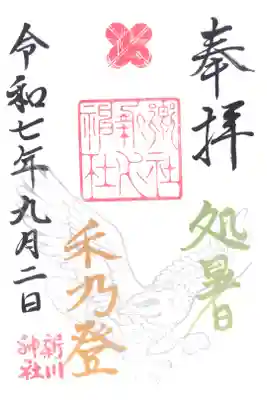 奉拝
処暑
郷社
新川
神社
禾乃登
令和七年九月二日
新川
神社